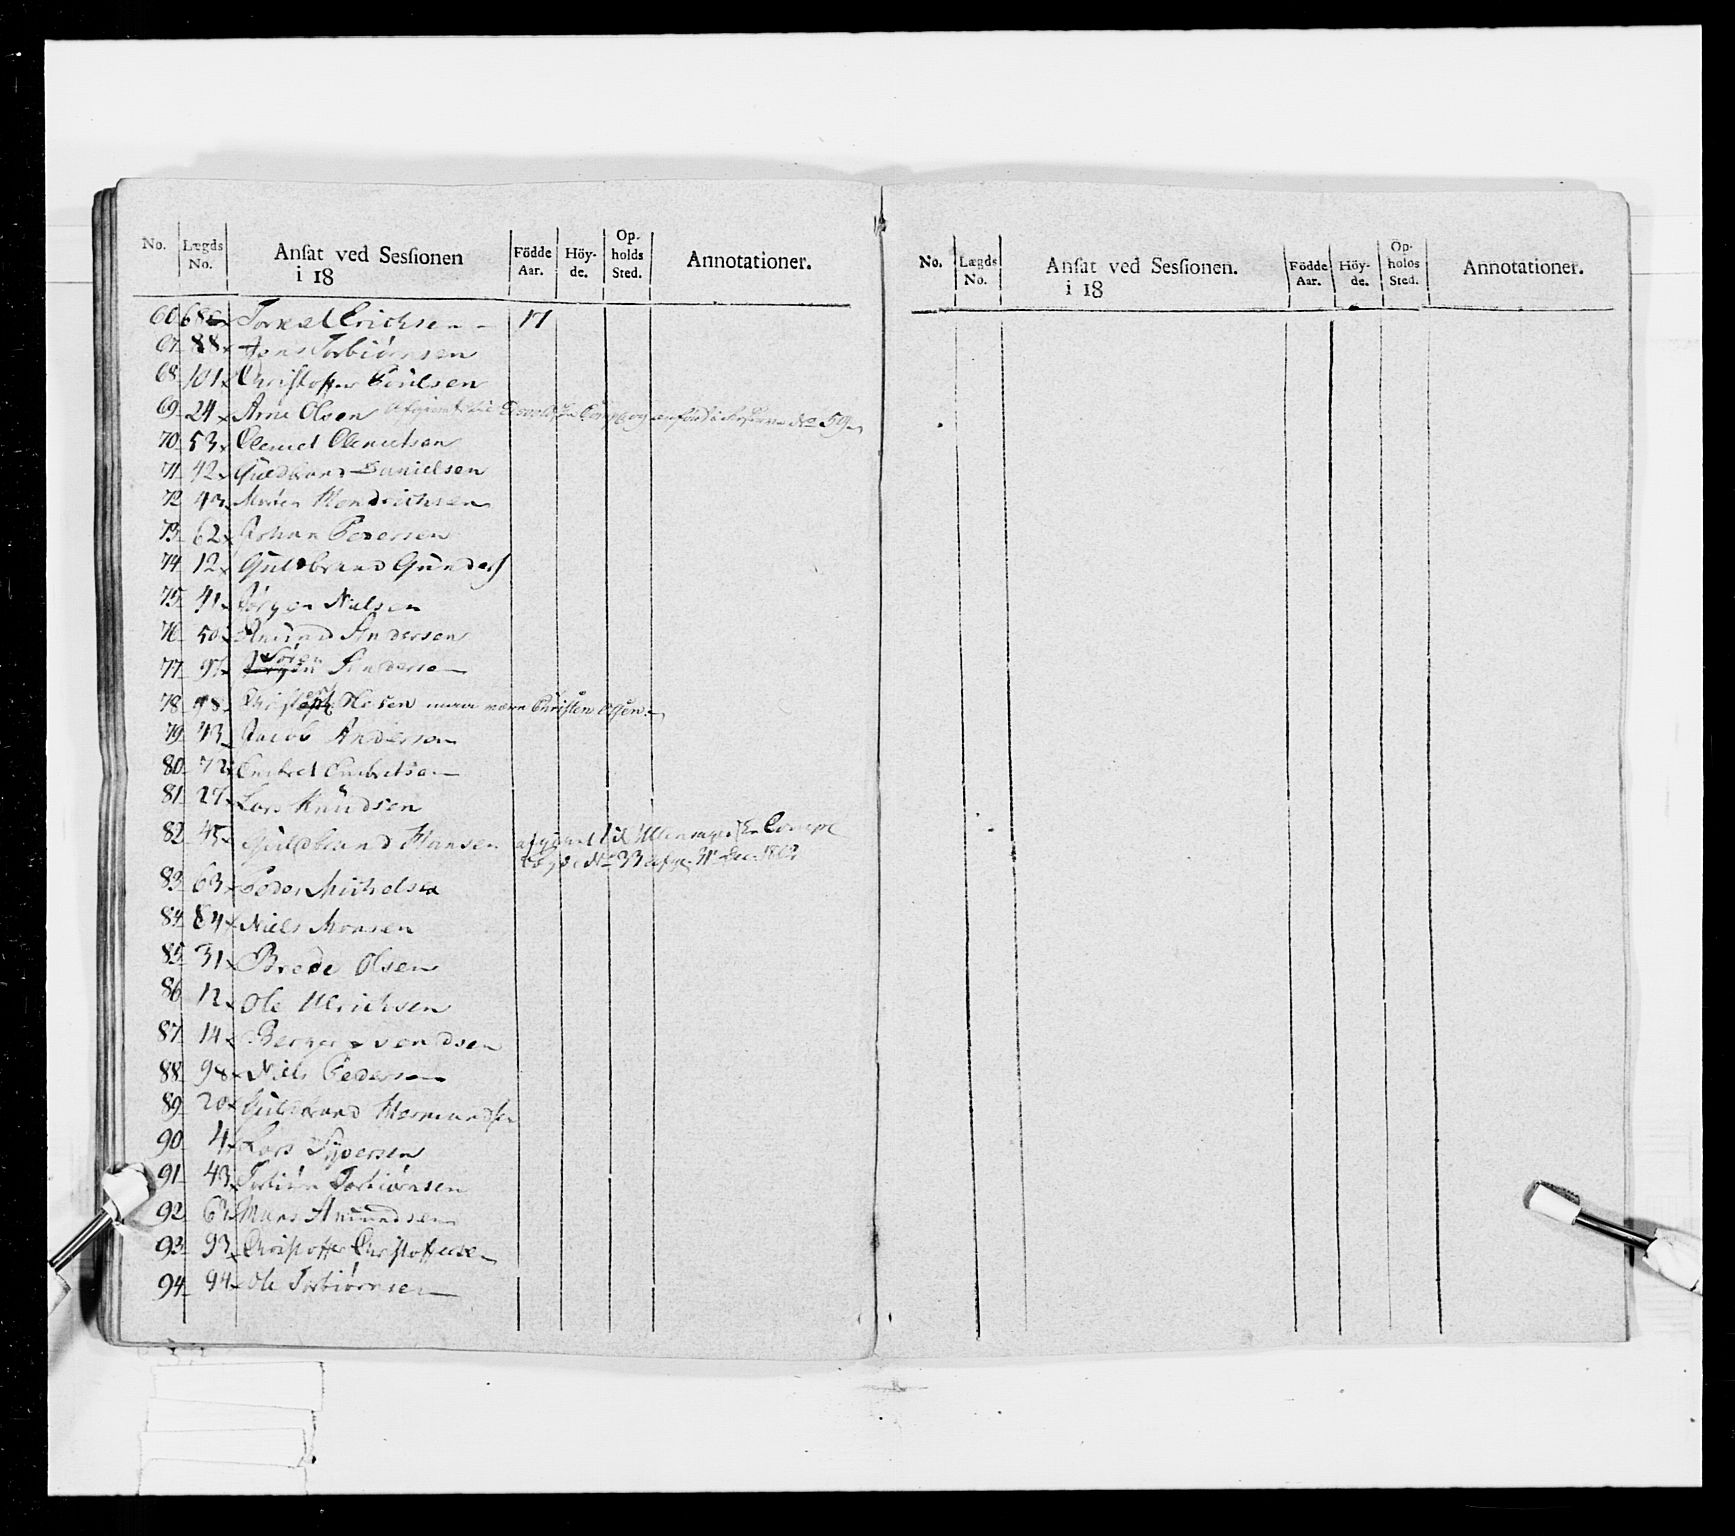 No. Lægds No. Ansat ved Sessionen i 18 Födde Aar. Höyde. Opholds Sted. Annotationer.
66 68 Torkel Erichsen 17
67 88 Jens Torbiörnsen
68 101 Christoffer Poulsen
69 24 Arne Olsen afgivet til Comp og anförd No 59
70 53 Clemet Clemetsen
71 42 Guldbrand Danielsen
72 43 Hendrichsen
73 62 Johan Pedersen
74 12 Guldbrand Gunders
75 41 Jörgen Nielsen
76 50 Amund Andersen
77 97 Sören Anderse
78 98 Olesen maae være Christen Olsen
79 43 Jacob Andersen
80 72 Embret Embretsen
81 27 Lars Knudsen
82 45 Guldbrand Hansen afgivet til Ullensager Comp
No 33 afg. 31 Dec. 1803
83 63 Peder Michelsen
84 84 Niels Monsen
85 31 Brede Olsen
86 12 Ole Ulrichsen
87 14 Berger Svendsen
88 98 Niels Pedersen
89 20 Guldbrand Hermandsen
90 4 Lars Syversen
91 43 Torbiörn Torbiörnsen
92 63 Hans Amundsen
93 93 Christoffer Christoffersen
94 94 Ole Torbiörnsen
No. Lægds No. Ansat ved Sessionen. i 18 Födde Aar. Höyde. Opholds Sted. Annotationer.